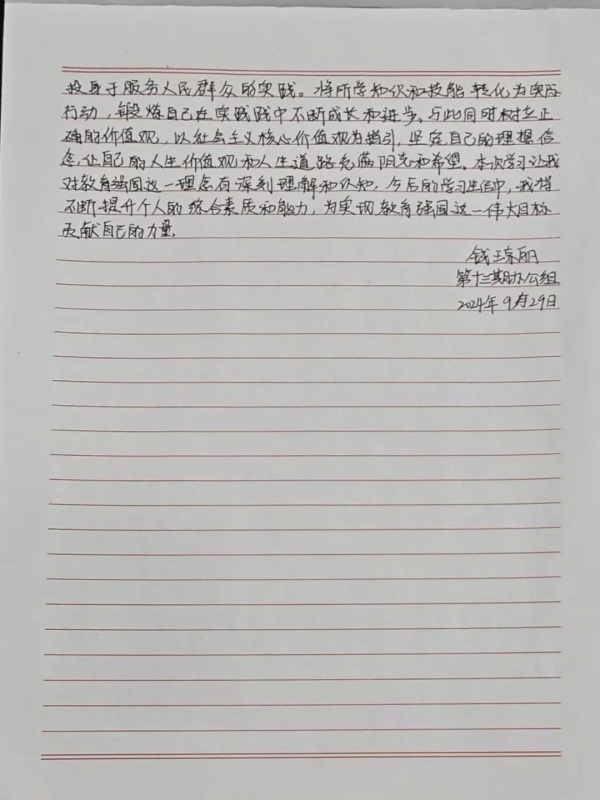 投身于服务人民群众的实践。将所学知识和技能转化为实际
行动，锻炼自己在实践践中不断成长和进步。与此同时树立正
确的价值观，以社会主义核心价值观为指引，坚定自己的理想信
念，让自己的人生价值观和人生道路充满阳光和希望。本次学习让我
对教育强国这一理念有深刻理解和认知，今后的学习生活中，我将
不断提升个人的综合素质和能力，为实现教育强国这一伟大目标
贡献自己的力量。
钱琼丽
第十三期办公组
2024年9月29日